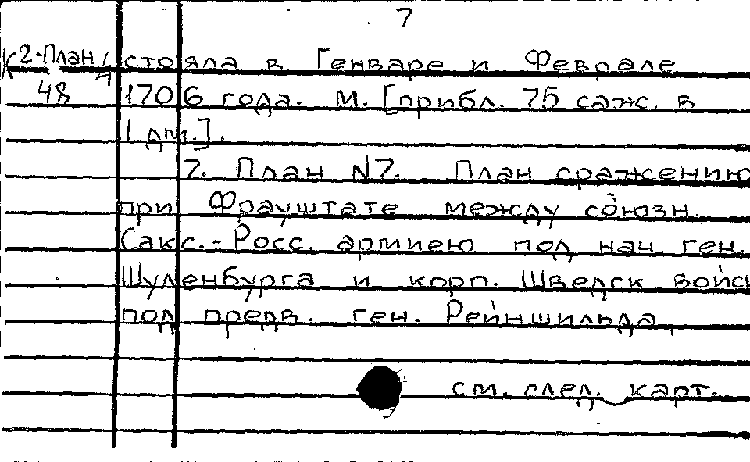 7
К2-План/4 стояла в Генваре и Феврале
48 1706 года. М. [прибл. 75 саж. в
1 дт.].
7. План N7. План сражению
при Фрауштате между союзн.
Сакс.-Росс. армиею под нач. ген.
Шуленбурга и корп. Шведск войск
под предв. ген. Рейншильда.
см. след. карт.